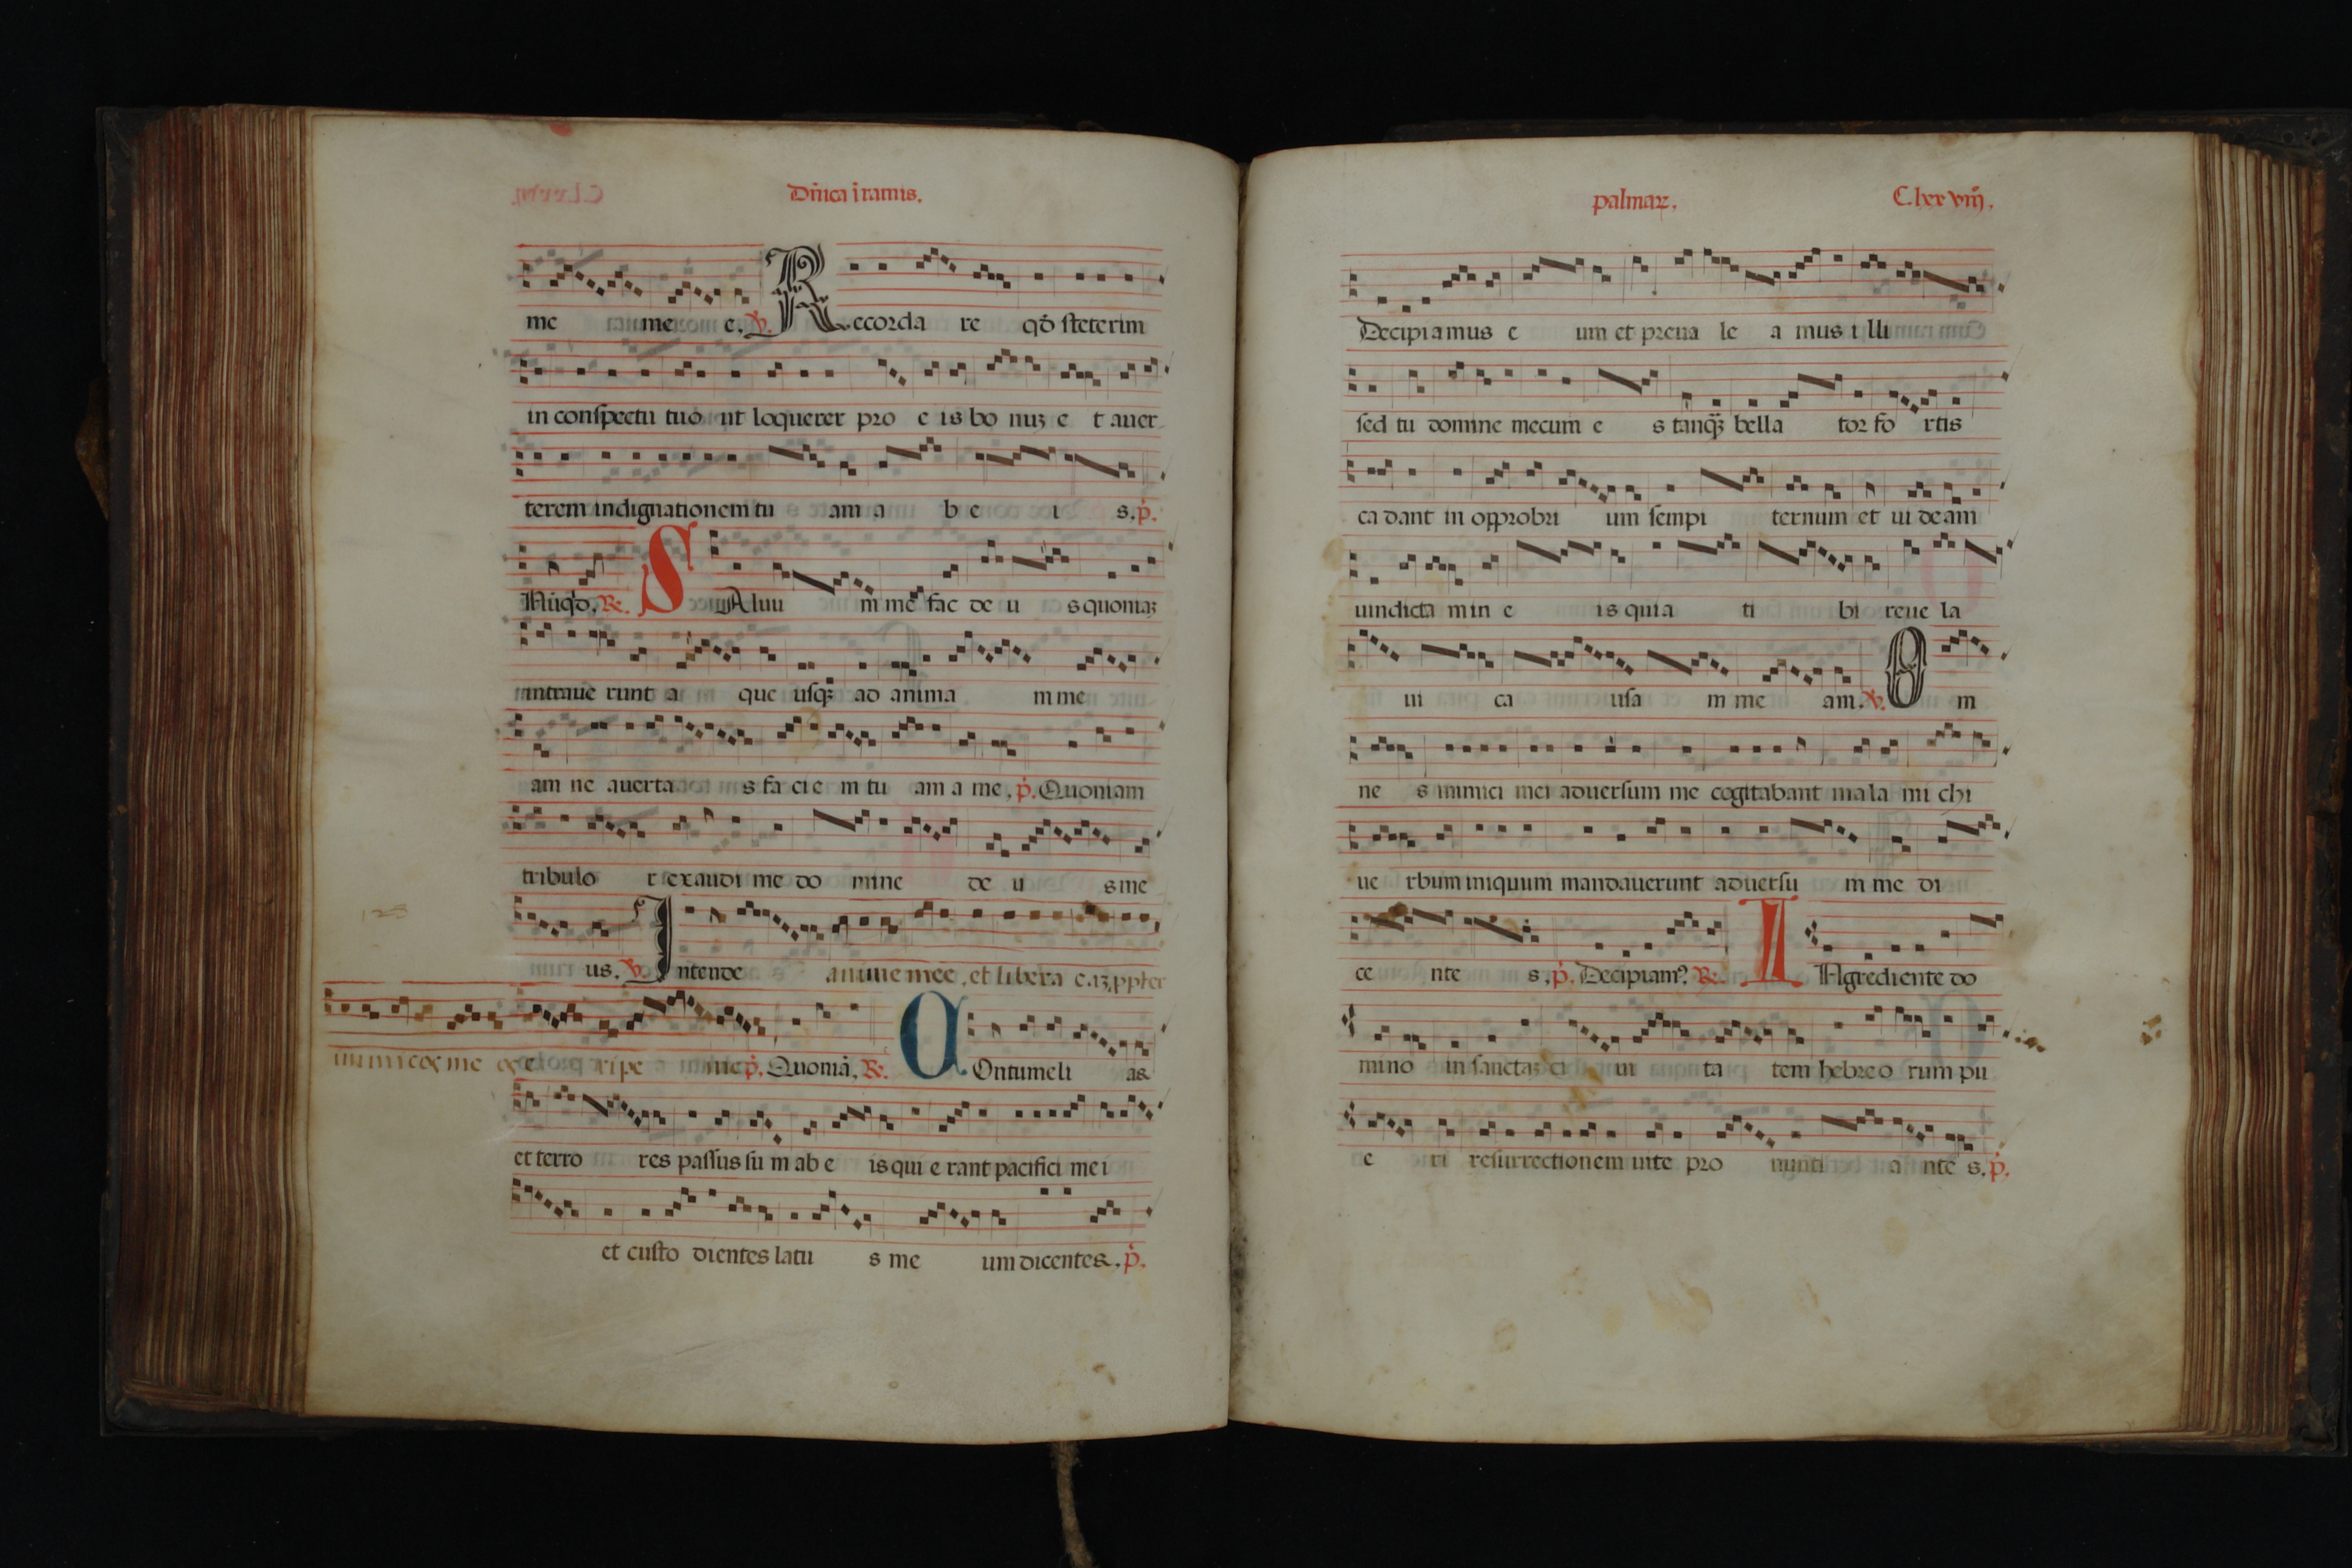 Dñica i ramis.
me me e. ℣. Recorda re qđ steterim
in conspectu tuo ut loquerer pro e is bo nuꝫ e t auer
terem indignationem tu am a b e i s. p̾.
Nūqđ. ℟. SAluu m me fac de u s quoniaꝫ
intraue runt a que usqꝫ ad anima m me
am ne auerta s fa ci e m tu am a me, p̾. Quoniam
tribulo r exaudi me do mine de u s me
us. ℣. Intende anime mee, et libera eaꝫ, ppter
inimicos meos eripe me p̾. Quoniā, ℟. COntumeli as
et terro res passus su m ab e is qui e rant pacifici me i
et custo dientes latu s me um dicentes. p̾.
palmaꝝ. C.lxxviiij.
Decipiamus e um et preua le a mus i lli
sed tu domine mecum e s tanq̃ꝫ bella tor fo rtis
ca dant in opprobri um sempi ternum et ui de am
uindicta m in e is quia ti bi reue la
ui ca usa m me am. ℣. O m
ne s inimici mei aduersum me cogitabant mala mi chi
ue rbum iniquum mandauerunt aduersu m me di
ce nte s. p̾. Decipiamꝰ. ℟. INgrediente do
mino in sanctaꝫ ci ui ta tem hebreo rum pu
e ri resurrectionem uite pro nunti a nte s. p̾.